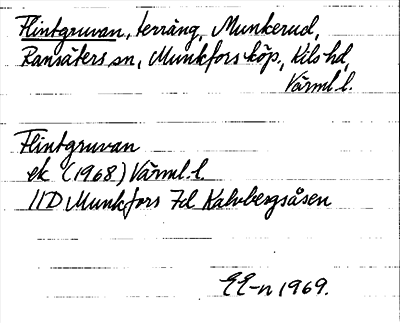 Flintgruvan, terräng, Munkerud,
Ransäters sn, Munkfors köp., Kils hd,
Värml.l.
Flintgruvan
ek (1968) Värml.l.
11D Munkfors 7d Kalvbergsåsen
EE-n 1969.